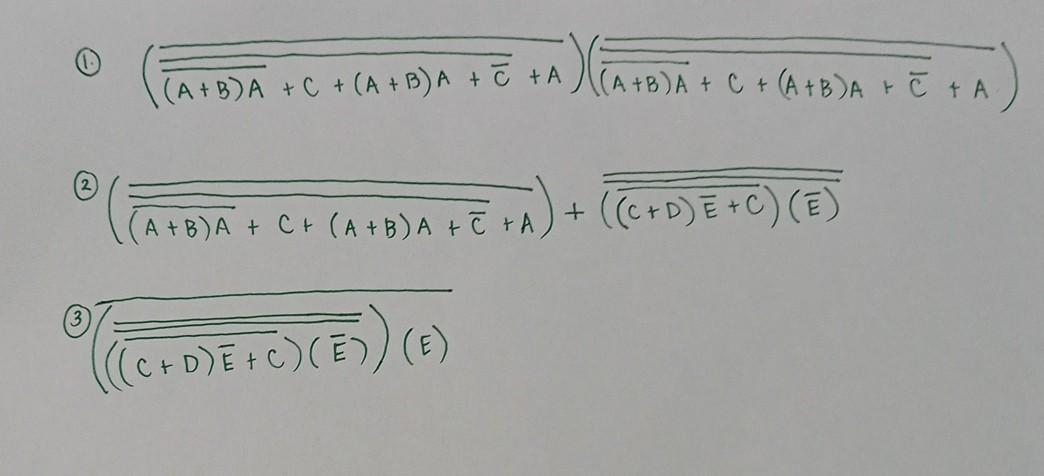 ① ((A+B)A + C + (A+B)A + C̅ + A)((A+B)A + C + (A+B)A + C̅ + A)
② ((A+B)A + C + (A+B)A + C̅ + A) + ((C+D)E̅ + C)(E̅)
③ (((C+D)E̅ + C)(E̅))(E)